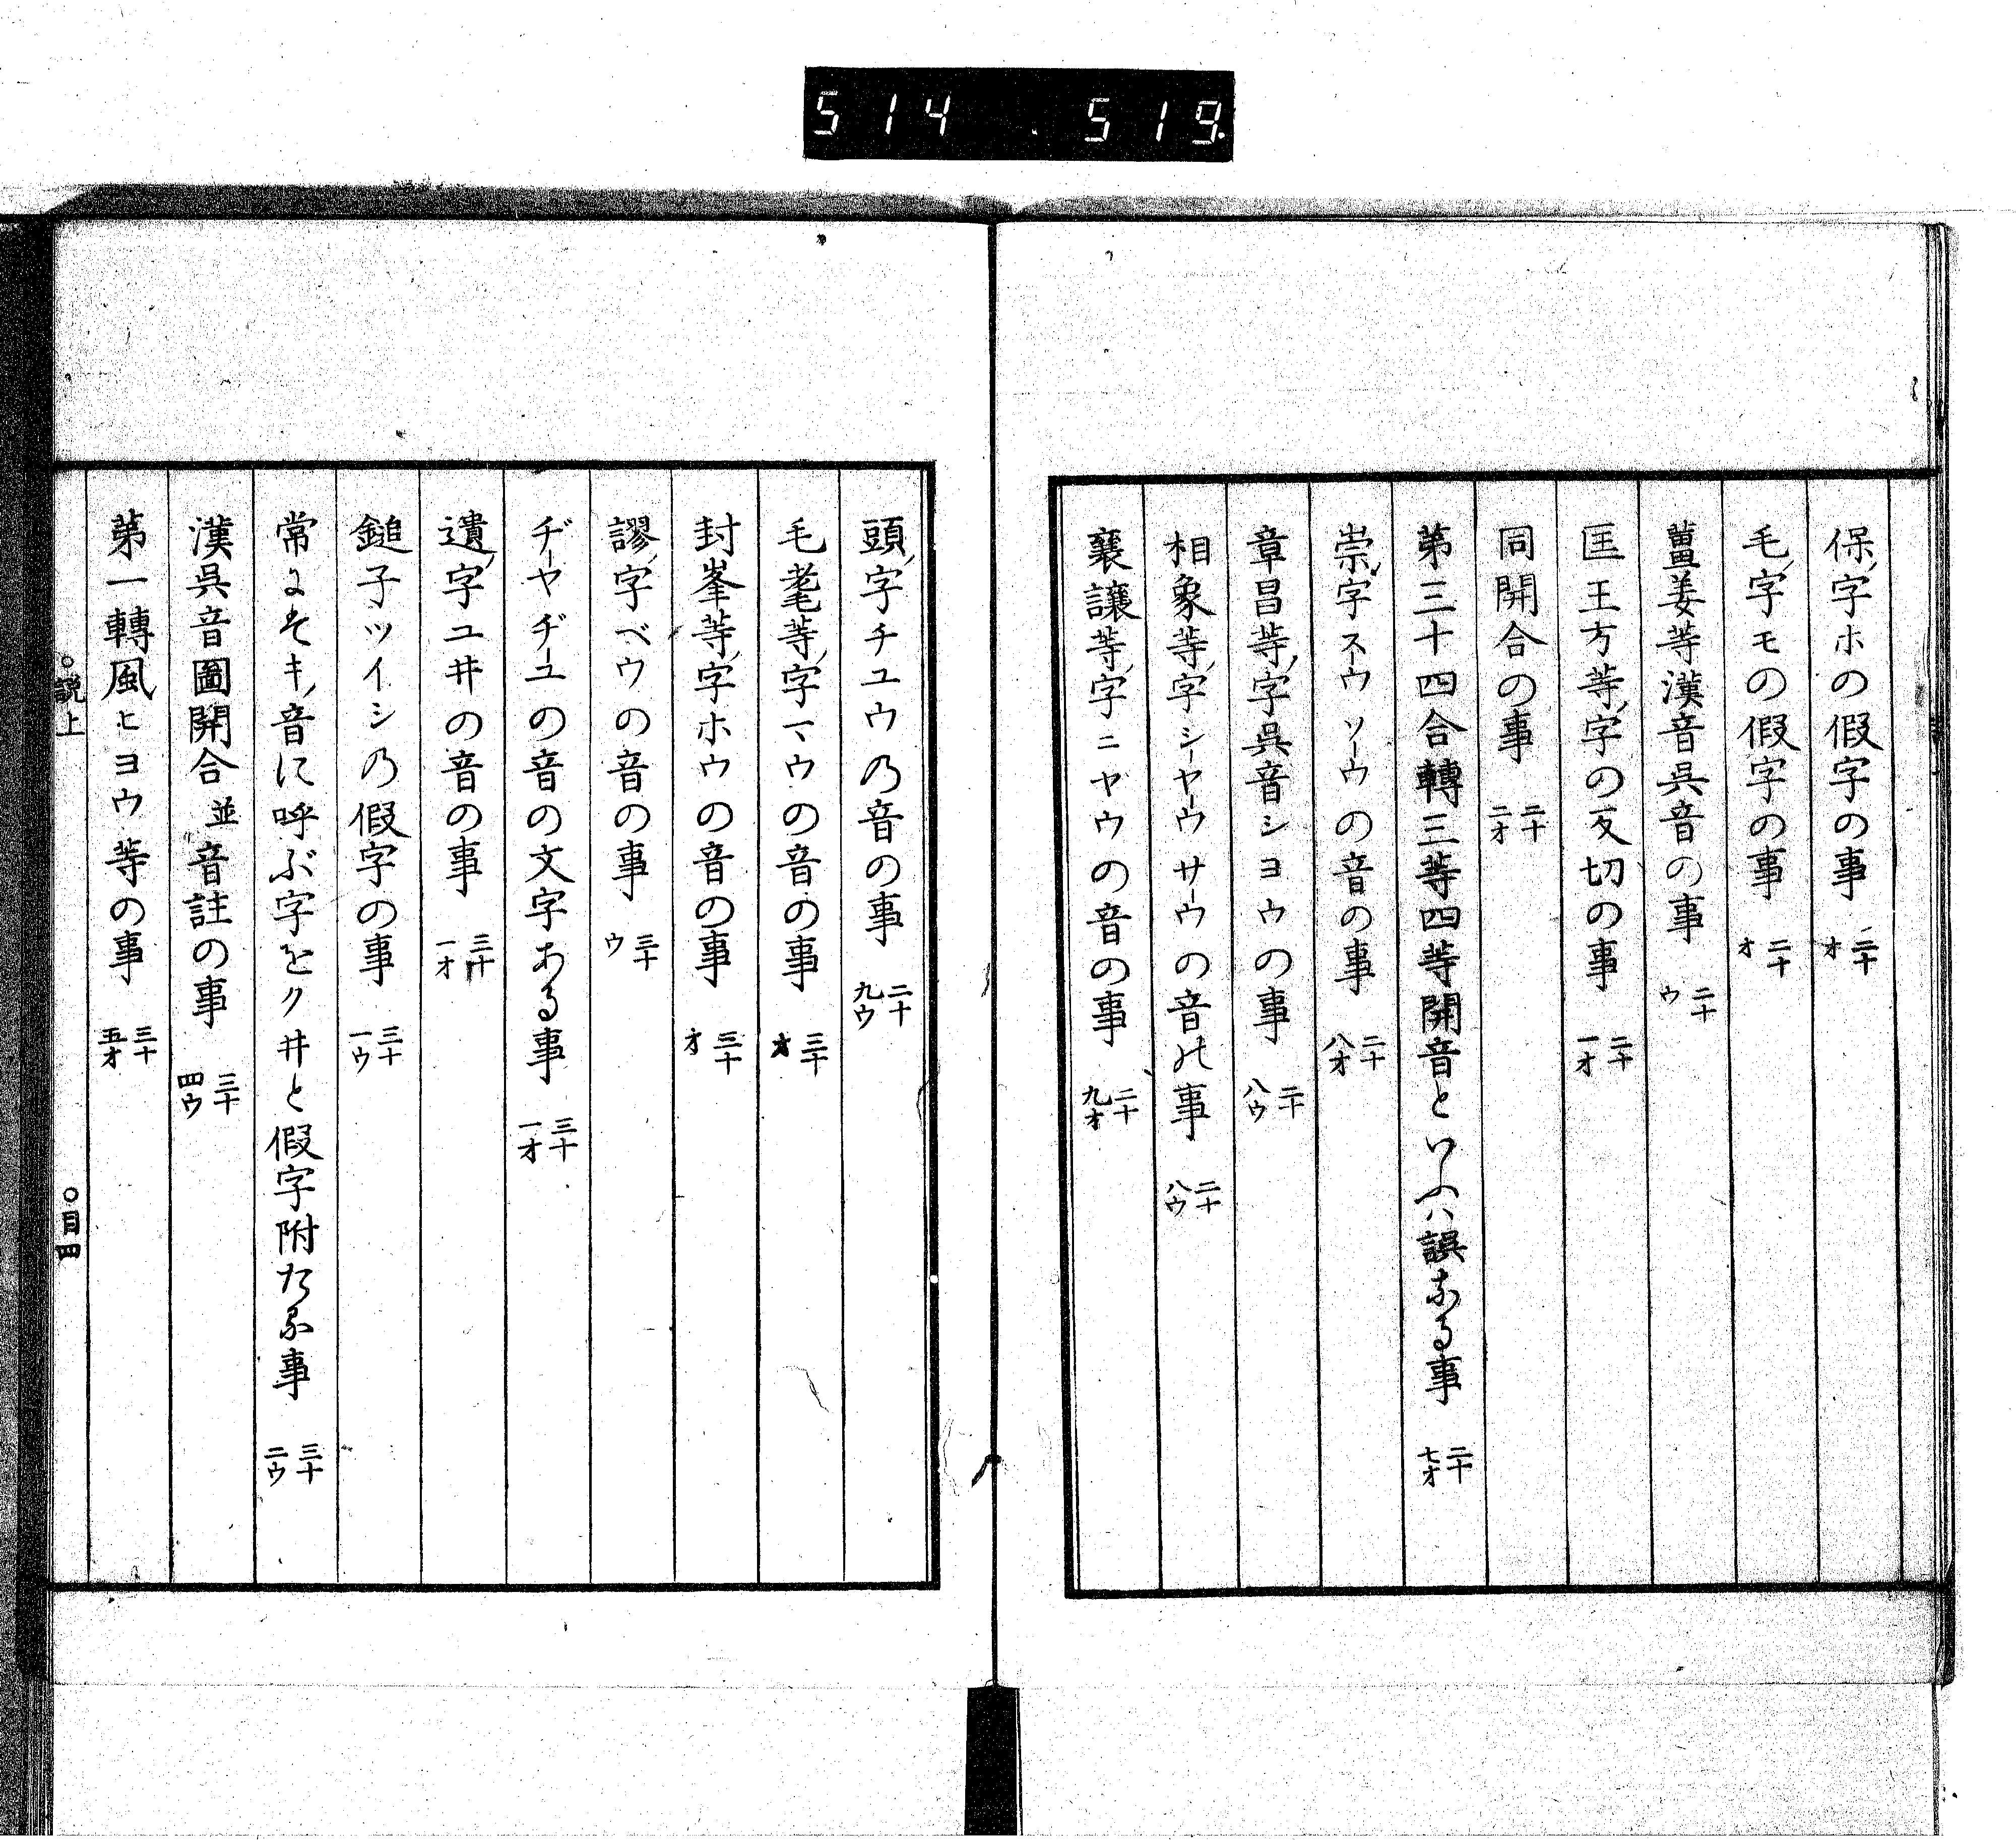 514.519.
保ノ字ホの假字の事 二十オ
毛ノ字モの假字の事 二十オ
薑姜等漢音呉音の事 二十ウ
匡王方等ノ字の反切の事 二十一オ
同開合の事 二十二オ
第三十四合轉三等四等開音といへハ誤なる事 二十七オ
崇ノ字スーウソーウの音の事 二十八オ
章昌等ノ字呉音シヨウの事 二十八ウ
相象等ノ字シーヤーウサーウの音の事 二十八ウ
襄讓等ノ字ニヤウの音の事 二十九オ
頭ノ字チユウの音の事 二十九ウ
毛耄等ノ字マウの音の事 三十オ
封峯等ノ字ホウの音の事 三十オ
謬ノ字ベウの音の事 三十ウ
ヂーヤヂーユの音の文字ある事 三十一オ
遺ノ字ユ井の音の事 三十一オ
鎚子ツイシの假字の事 三十一ウ
常によそキノ音に呼ぶ字をク井と假字附たる事 三十二ウ
漢呉音圖開合並音註の事 三十四ウ
第一轉風ヒヨウ等の事 三十五オ
○説上 ○目四